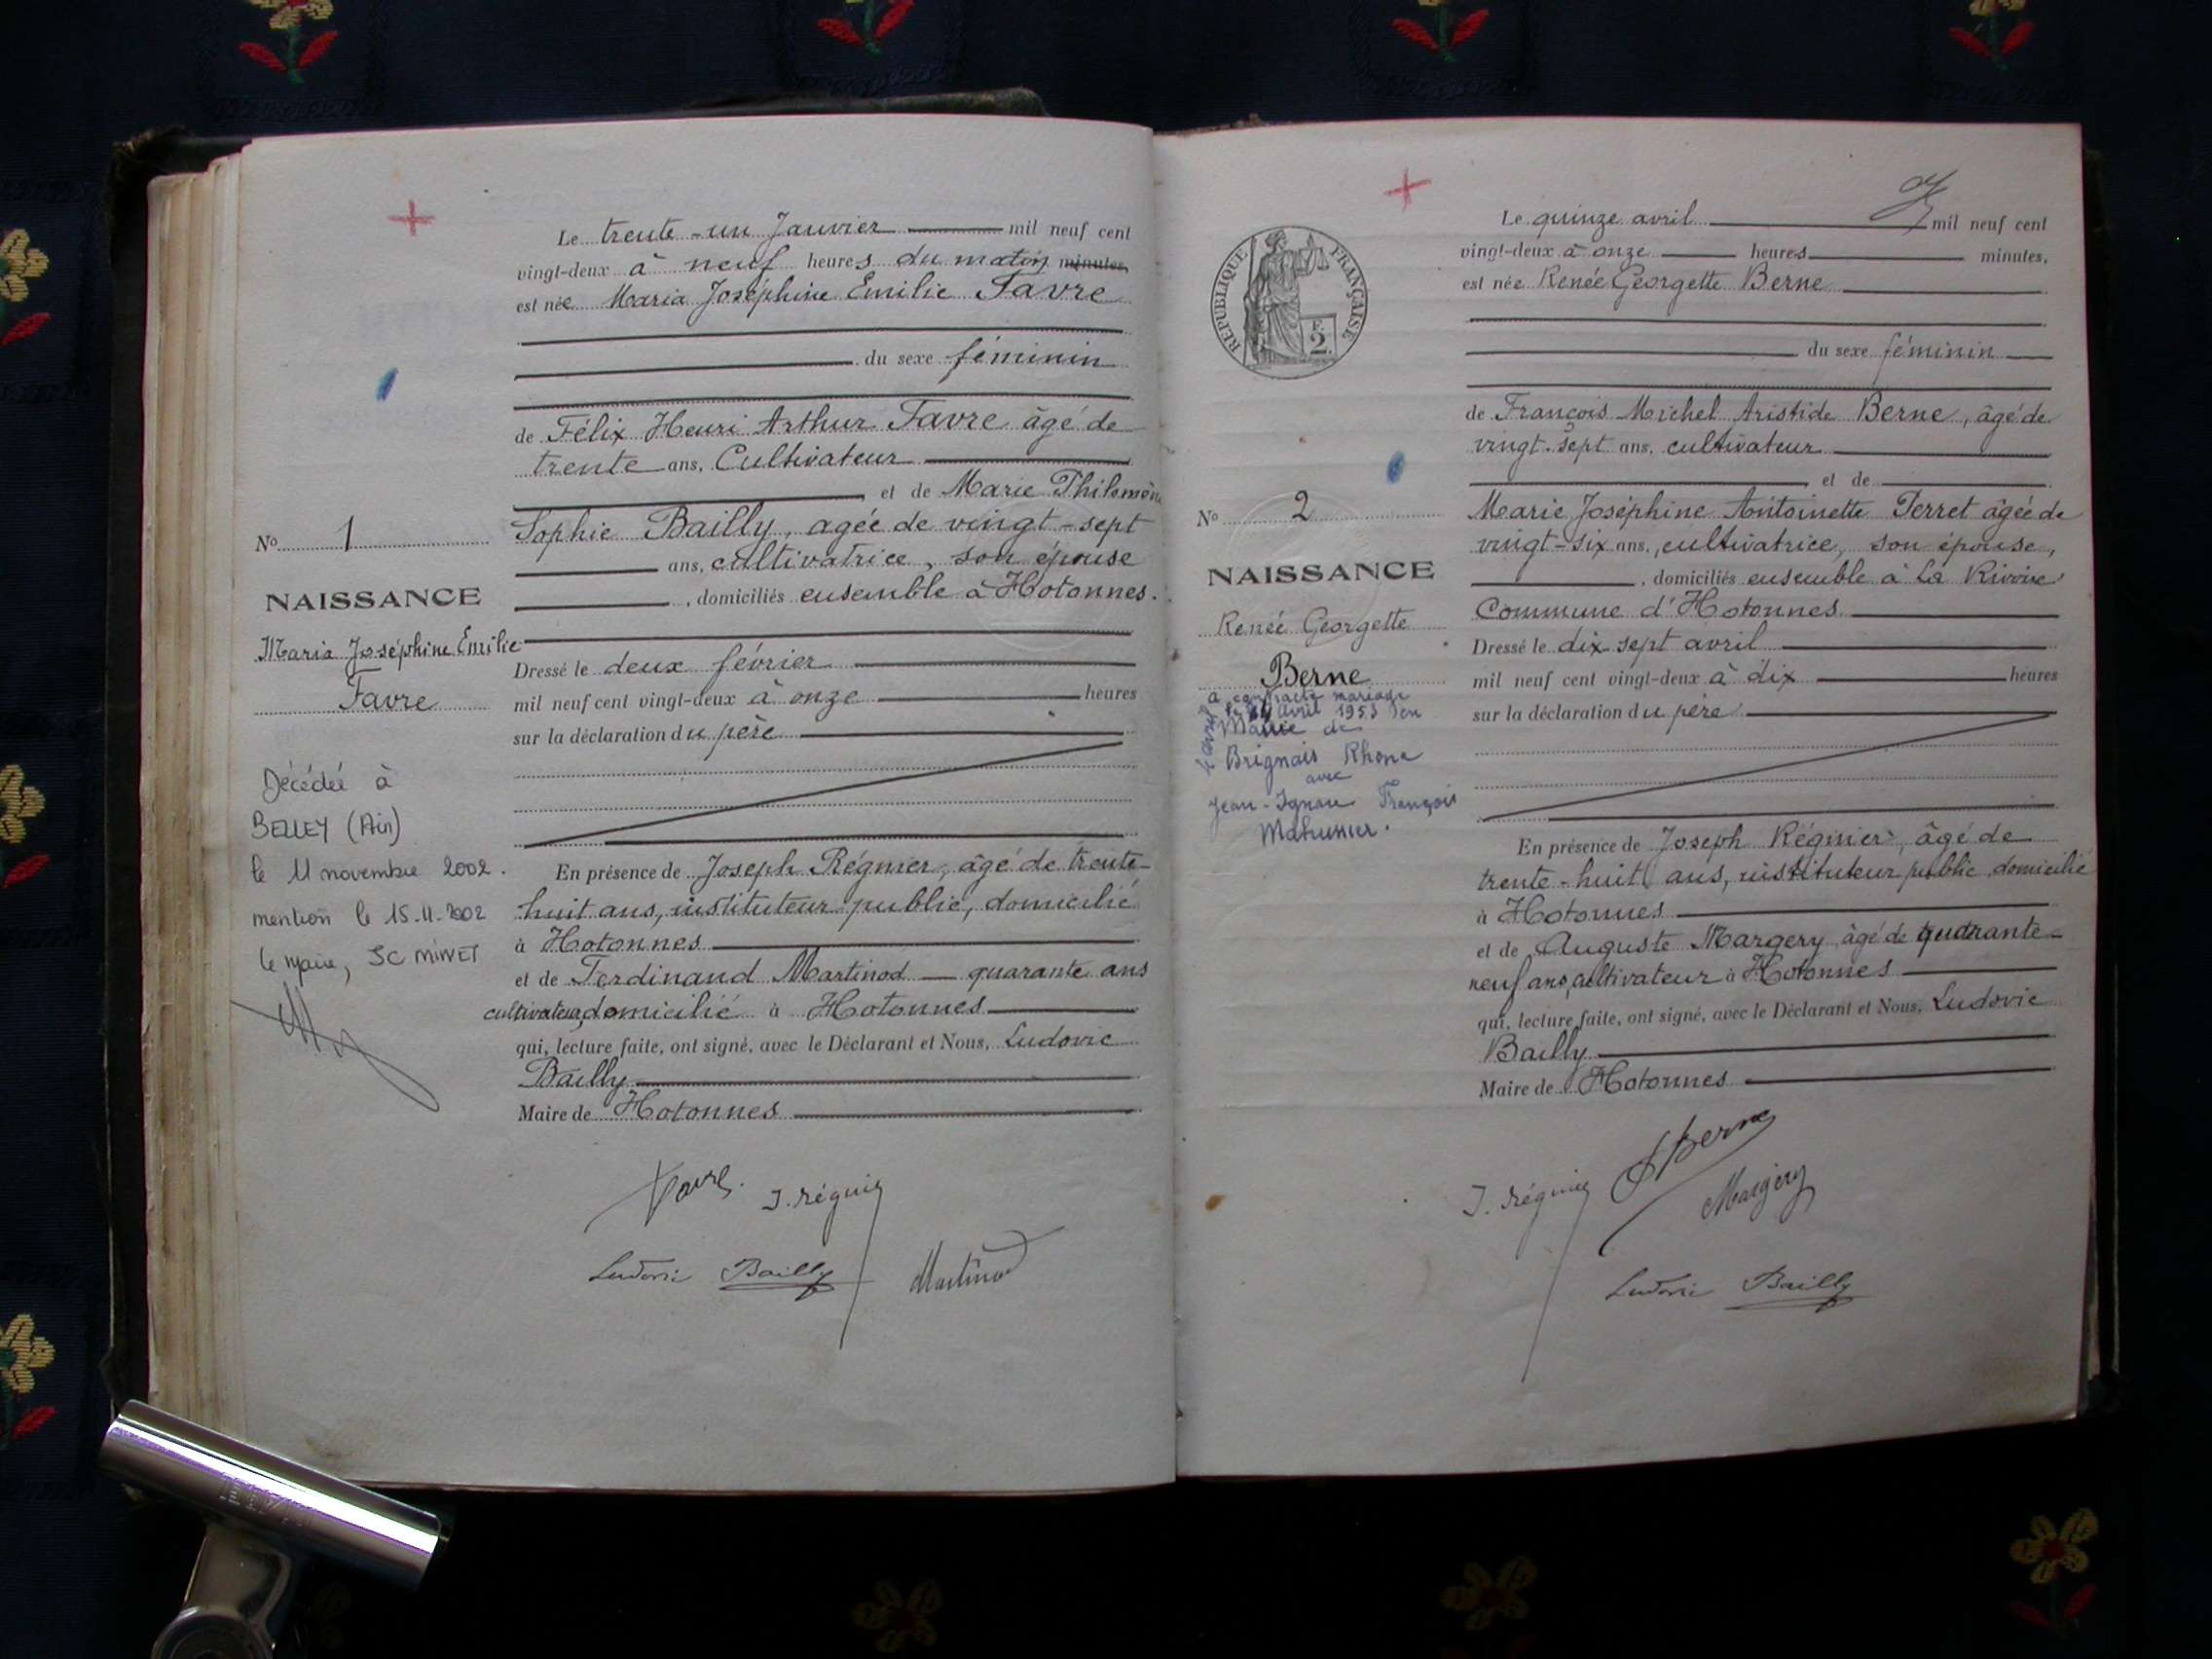 Le trente-un Janvier mil neuf cent
vingt-deux à neuf heures du matin minutes,
est née Maria Joséphine Emilie Favre
du sexe féminin
de Félix Henri Arthur Favre âgé de
trente ans, Cultivateur
et de Marie Philomène
Sophie Bailly, agée de vingt-sept
ans, cultivatrice, son épouse
, domiciliés ensemble à Hotonnes.
Dressé le deux février
mil neuf cent vingt-deux à onze heures
sur la déclaration du père
En présence de Joseph Régnier, âgé de trente-
huit ans, instituteur public, domicilié
à Hotonnes
et de Ferdinand Martinod quarante ans
cultivateur, domicilié à Hotonnes
qui, lecture faite, ont signé, avec le Déclarant et Nous, Ludovic
Bailly
Maire de Hotonnes
Favre. J. Régnier
Ludovic Bailly Martinod
No 1
NAISSANCE
Maria Joséphine Emilie
Favre
Décédée à
BELLEY (Ain)
le 11 novembre 2002.
mention le 15-11-2002
le Maire, JC MINET
Le quinze avril mil neuf cent
vingt-deux à onze heures minutes,
est née Renée Georgette Berne
du sexe féminin
de François Michel Aristide Berne, âgé de
vingt-sept ans, cultivateur
et de
Marie Joséphine Antoinette Perret âgée de
vingt-six ans, cultivatrice, son épouse,
, domiciliés ensemble à La Rivoire
Commune d'Hotonnes
Dressé le dix sept avril
mil neuf cent vingt-deux à dix heures
sur la déclaration du père
En présence de Joseph Régnier, âgé de
trente-huit ans, instituteur public, domicilié
à Hotonnes
et de Auguste Margery âgé de quarante-
neuf ans, cultivateur à Hotonnes
qui, lecture faite, ont signé, avec le Déclarant et Nous, Ludovic
Bailly
Maire de Hotonnes
J. Régnier Berne
Margery
Ludovic Bailly
RÉPUBLIQUE FRANÇAISE
F.
2
No 2
NAISSANCE
Renée Georgette
Berne
a contracté mariage
le avril 1953 en
Mairie de
Brignais Rhone
avec
Jean-Ignace François